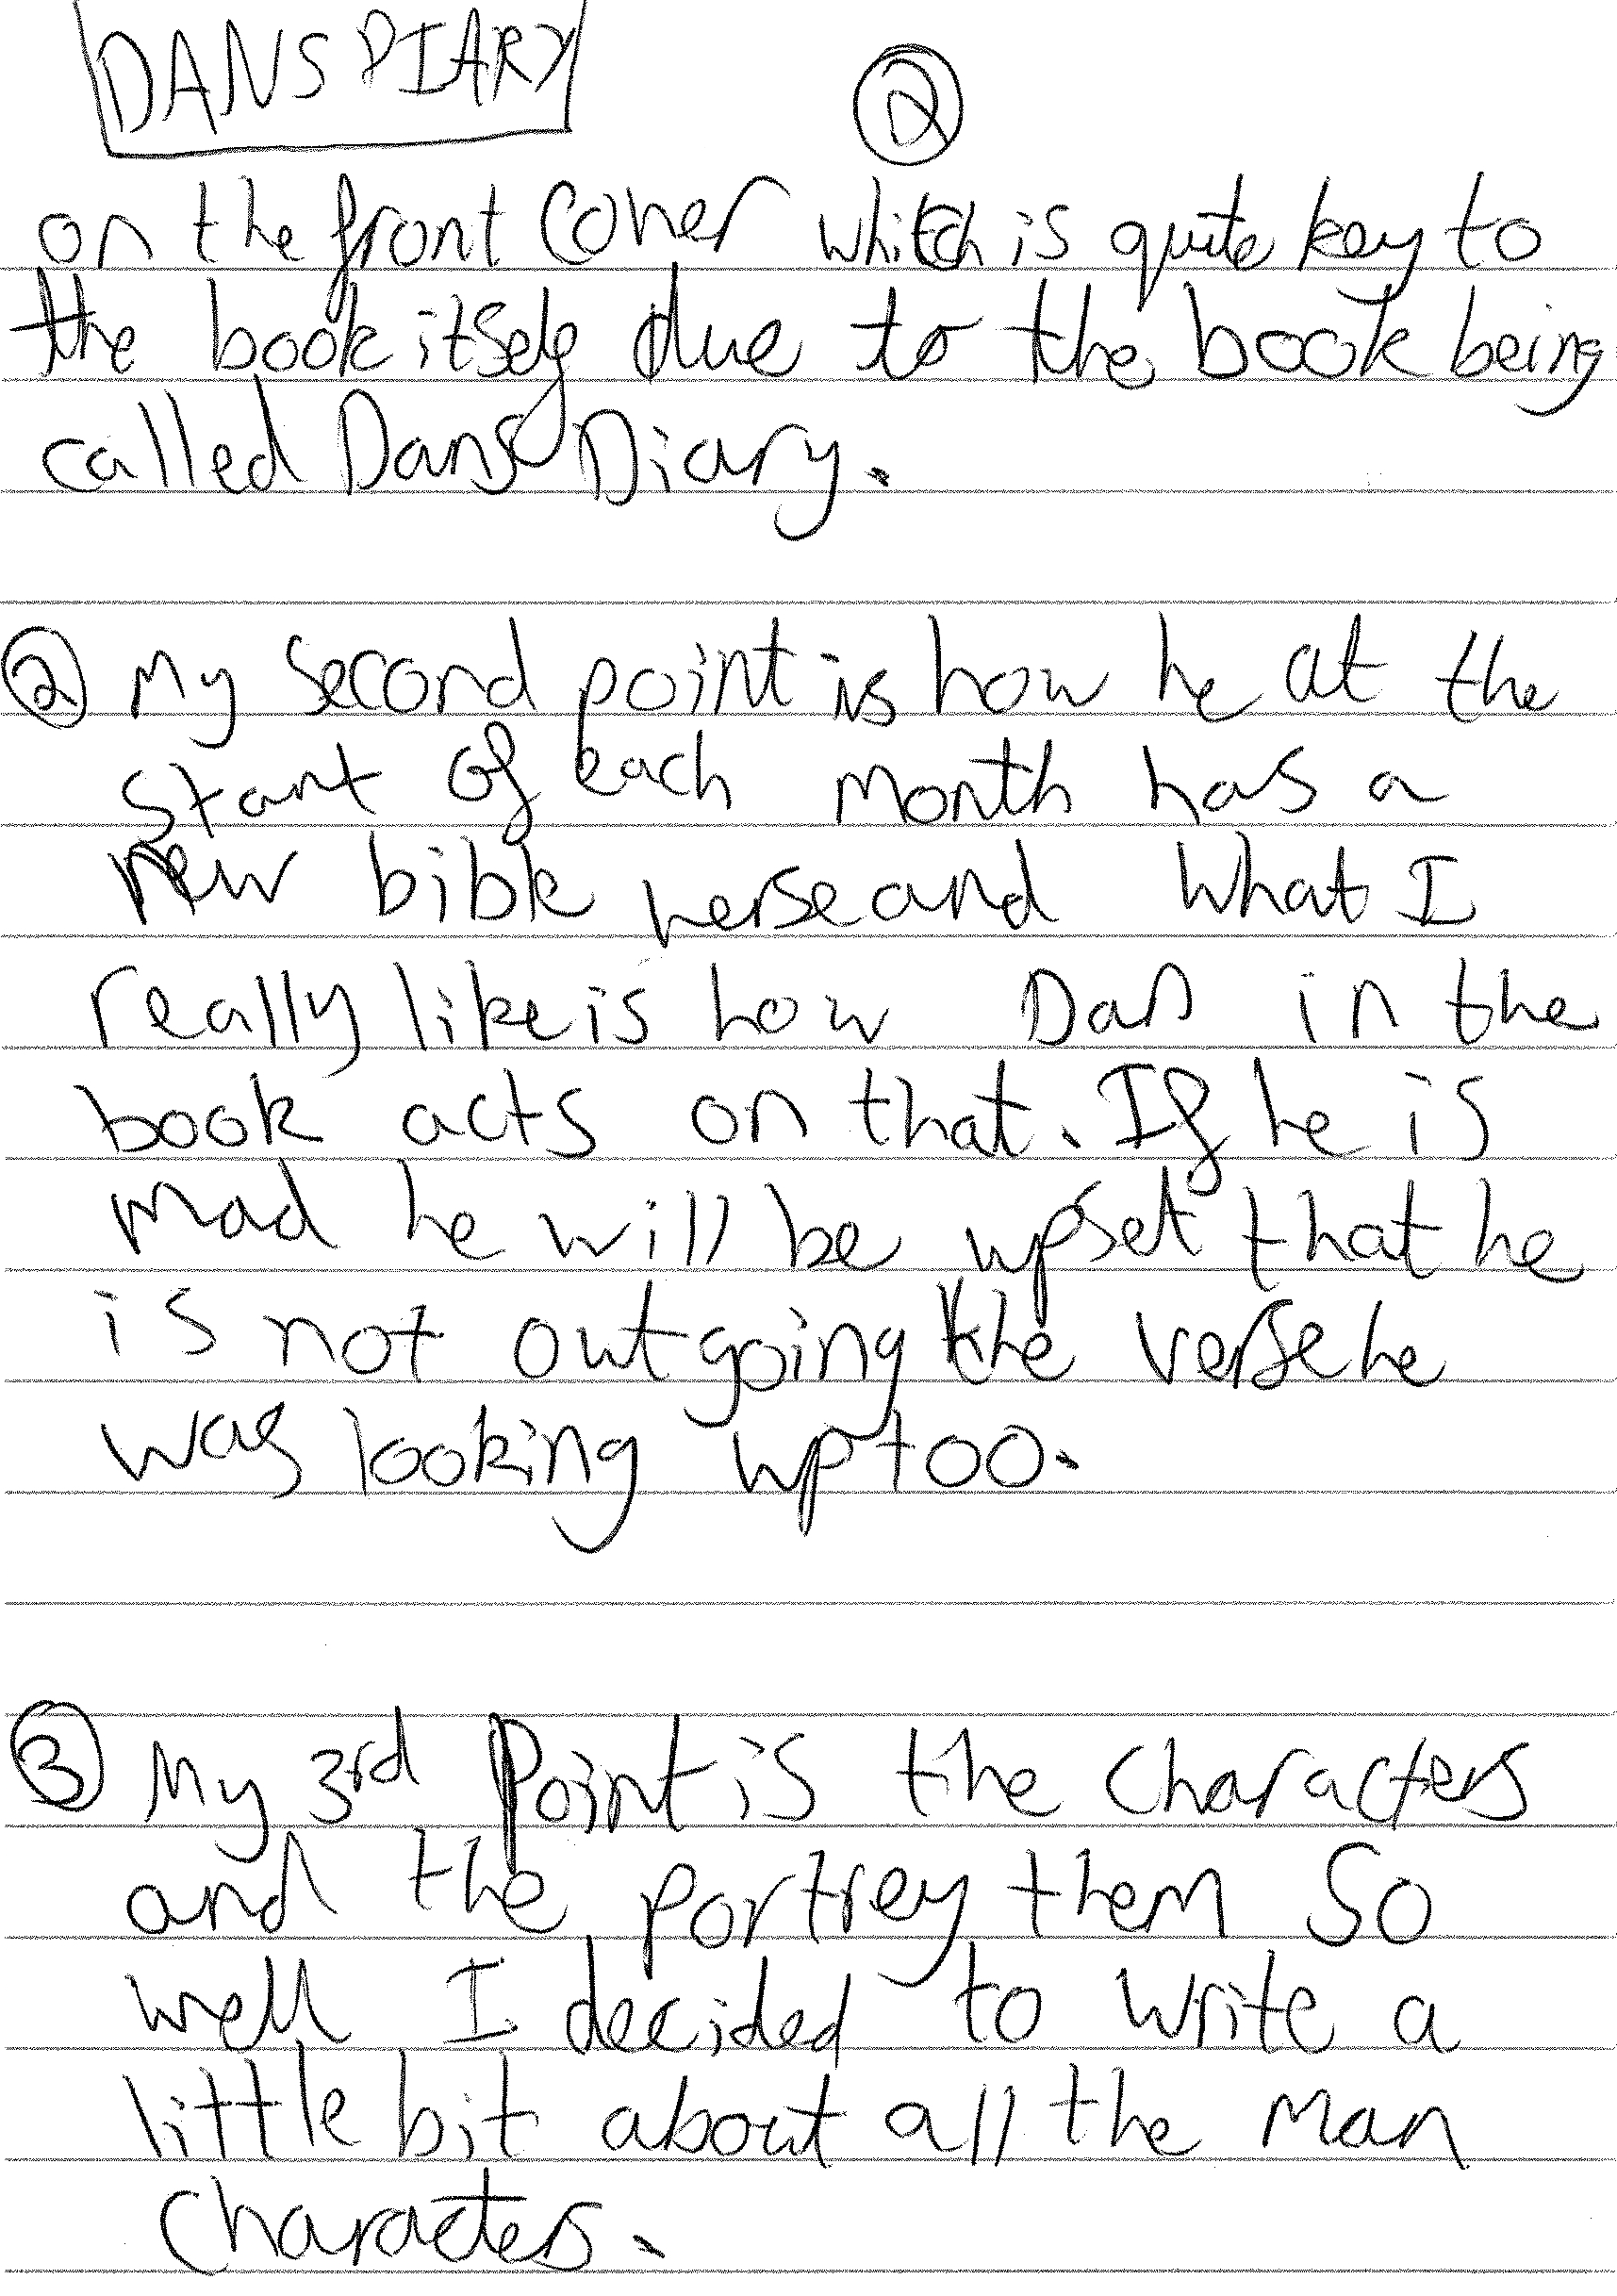 DANS DIARY
2
on the front cover whitch is quite key to
the book itself due to the book being
called Dans Diary.
2 My second point is how he at the
start of each month has a
new bible verse and what I
really like is how Dan in the
book acts on that. If he is
mad he will be upset that he
is not outgoing the verse he
was looking up too.
3 My 3rd Point is the characters
and the portrey them so
well I decided to write a
little bit about all the man
characters.